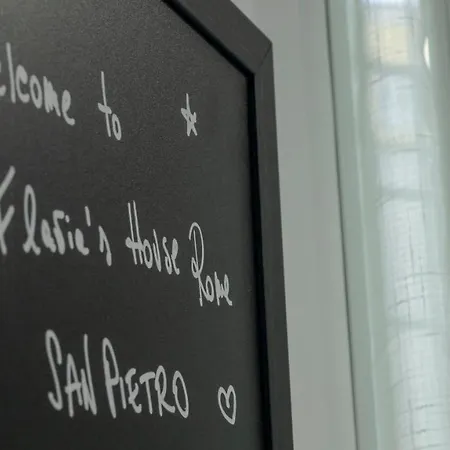 elcome to
Flavia's House Rome
SAN PIETRO